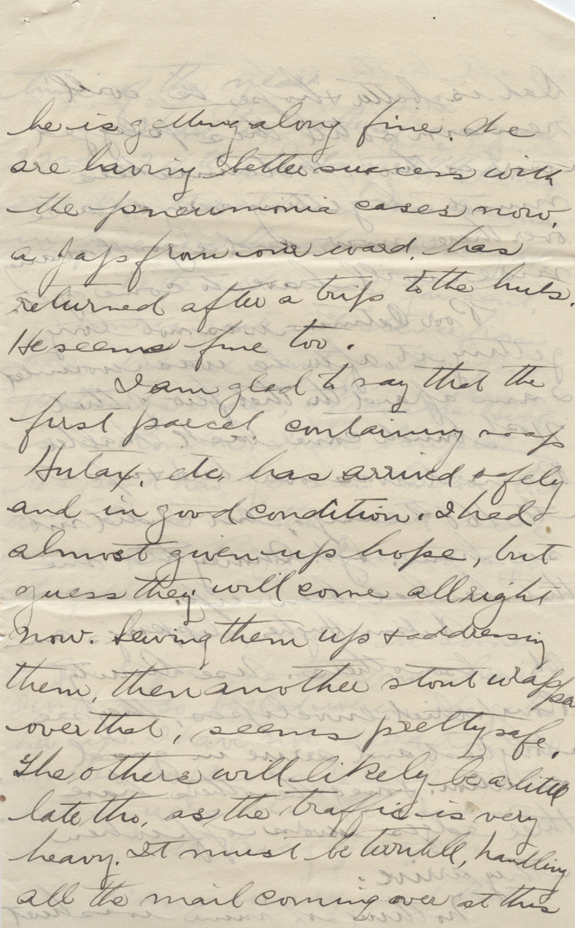 he is getting along fine. We
are having better success with
the pneumonia cases now,
a Jap from our ward, has
returned after a trip to the huts.
He seems fine too.
I am glad to say that the
first parcel containing soap
etc. has arrived safely
and in good condition. I had
almost given up hope, but
guess they will come allright
now. Sewing them up & addressing
them, then another stout wrapper
over that, seems pretty safe.
The others will likely be a little
late tho, as the traffic is very
heavy. It must be terrible, handling
all the mail coming over at this